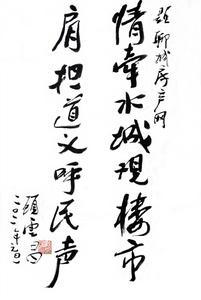 题聊城房产网
情牵水城现楼市
肩担道义呼民声
二〇一一年元旦